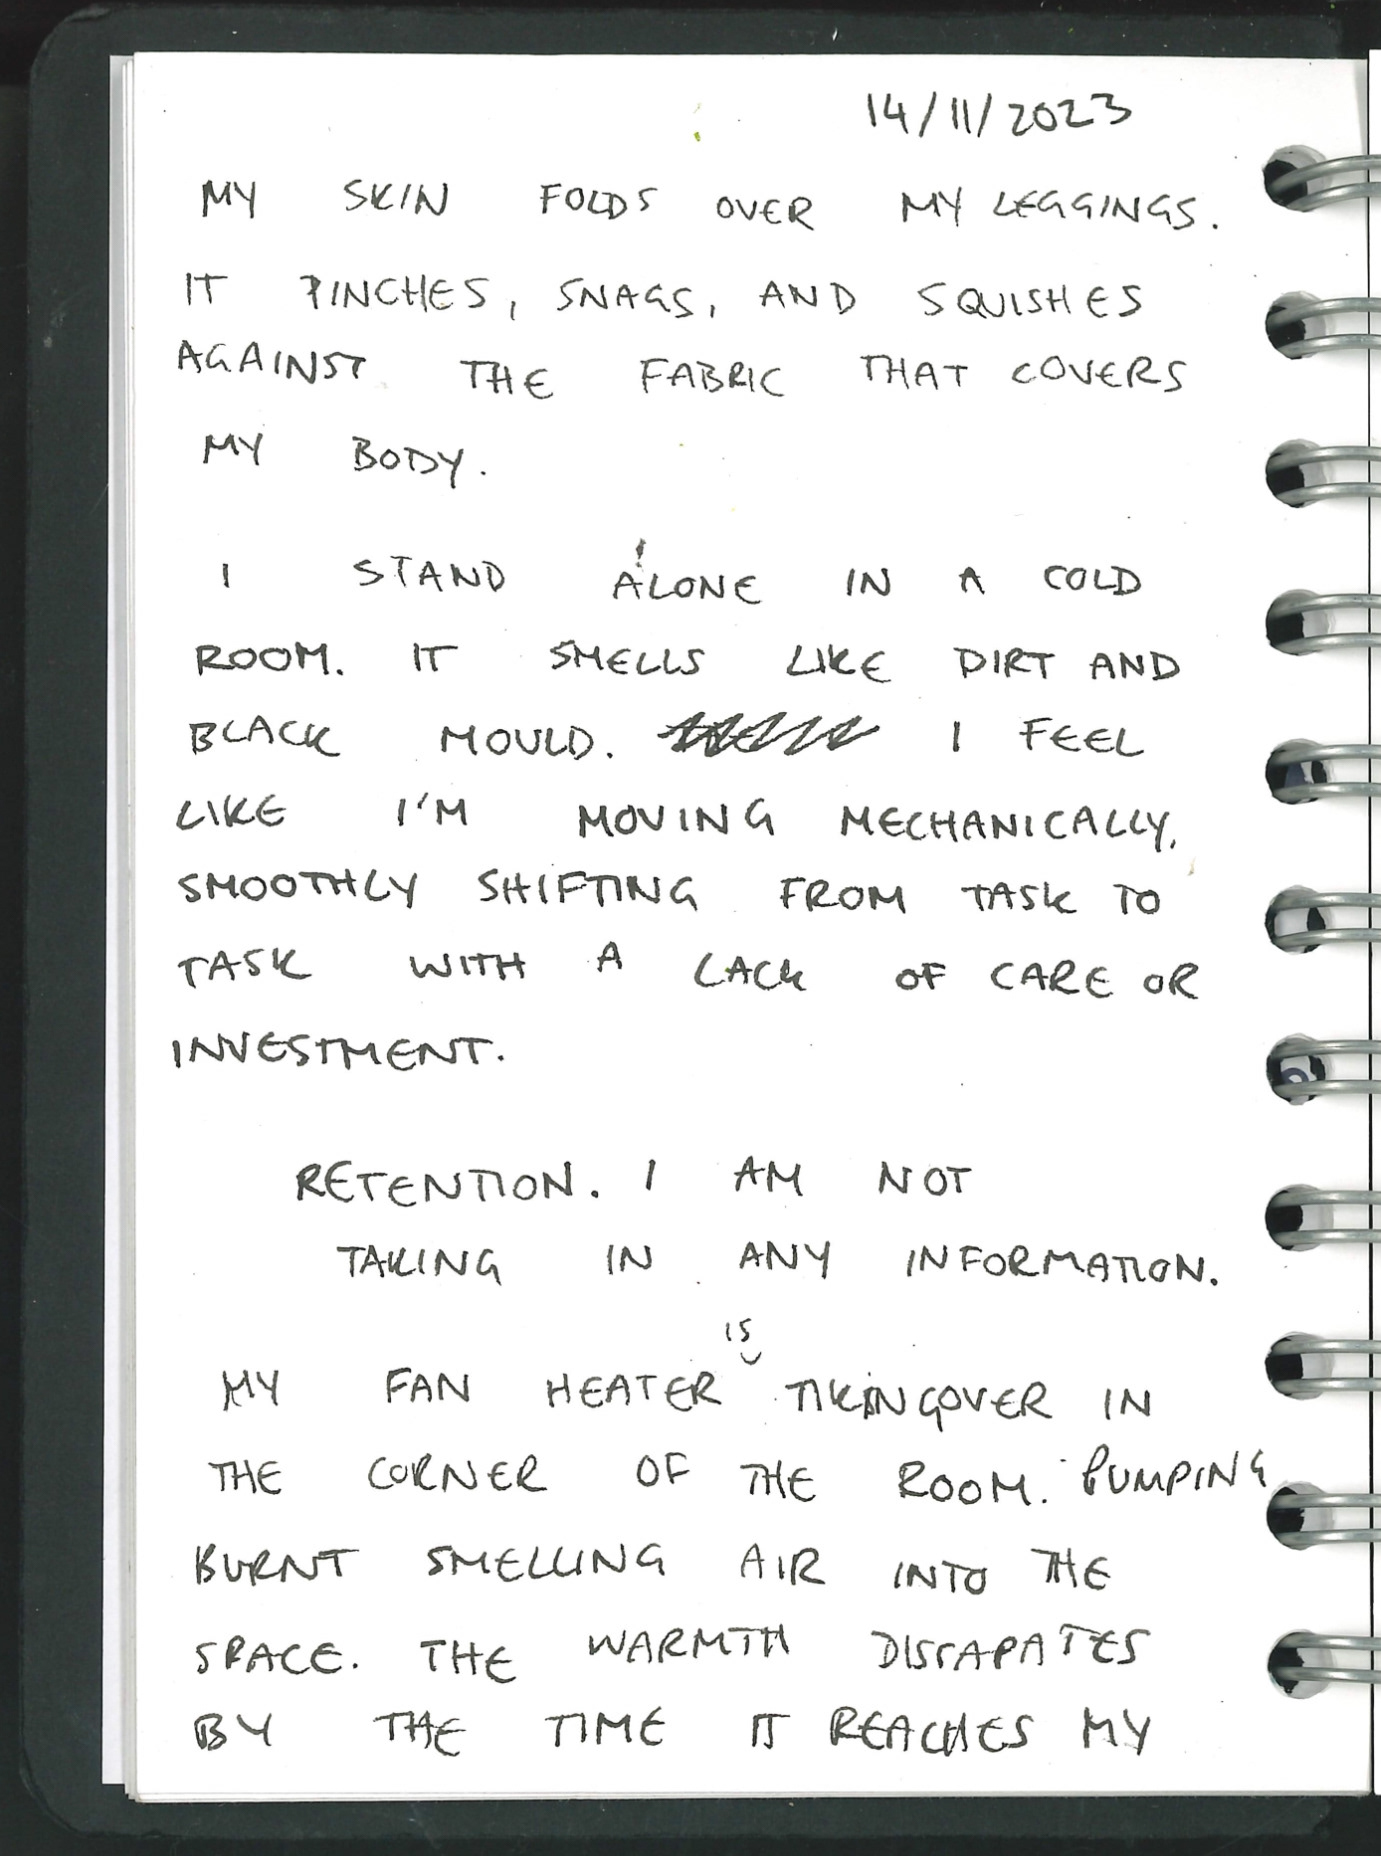 14/11/2023
MY SKIN FOLDS OVER MY LEGGINGS.
IT PINCHES, SNAGS, AND SQUISHES
AGAINST THE FABRIC THAT COVERS
MY BODY.
I STAND ALONE IN A COLD
ROOM. IT SMELLS LIKE DIRT AND
BLACK MOULD. I FEEL
LIKE I'M MOVING MECHANICALLY,
SMOOTHLY SHIFTING FROM TASK TO
TASK WITH A LACK OF CARE OR
INVESTMENT.
RETENTION. I AM NOT
TAKING IN ANY INFORMATION.
IS
MY FAN HEATER TIKINGOVER IN
THE CORNER OF THE ROOM. PUMPING
BURNT SMELLING AIR INTO THE
SPACE. THE WARMTH DISSAPATES
BY THE TIME IT REACHES MY